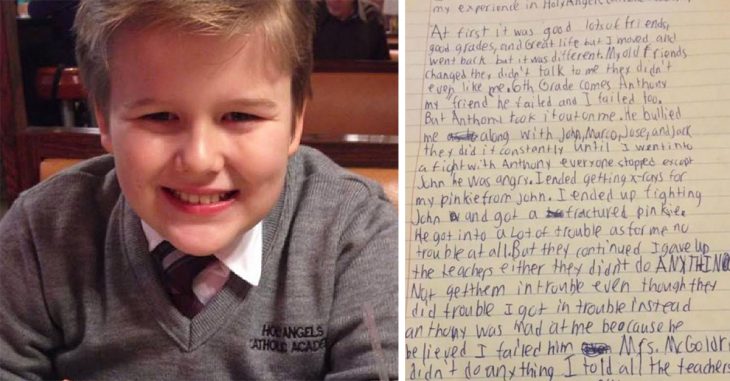 HOLY ANGELS
CATHOLIC ACADE
my experience in Holy Angels
At first it was good lots of friends,
good grades, and Great life but I moved and
went back but it was different. My old friends
changed they didn't talk to me they didn't
even like me. 6th Grade comes Anthony
my friend he failed and I failed too.
But Anthony took it out on me. He bullied
me along with John, Marco, Jose, and Jack
they did it constantly until I went into
a fight with Anthony everyone stopped except
John he was angry. I ended getting x-rays for
my pinkie from John. I ended up fighting
John and got a fractured pinkie
He got into a Lot of trouble as for me no
trouble at all. But they continued I gave up
the teachers either they didn't do ANYTHING
Not get them in trouble even though they
did trouble I got in trouble instead
anthony was mad at me beocause he
believed I failed him Mrs. McGoldri
didn't do anything I told all the teachers